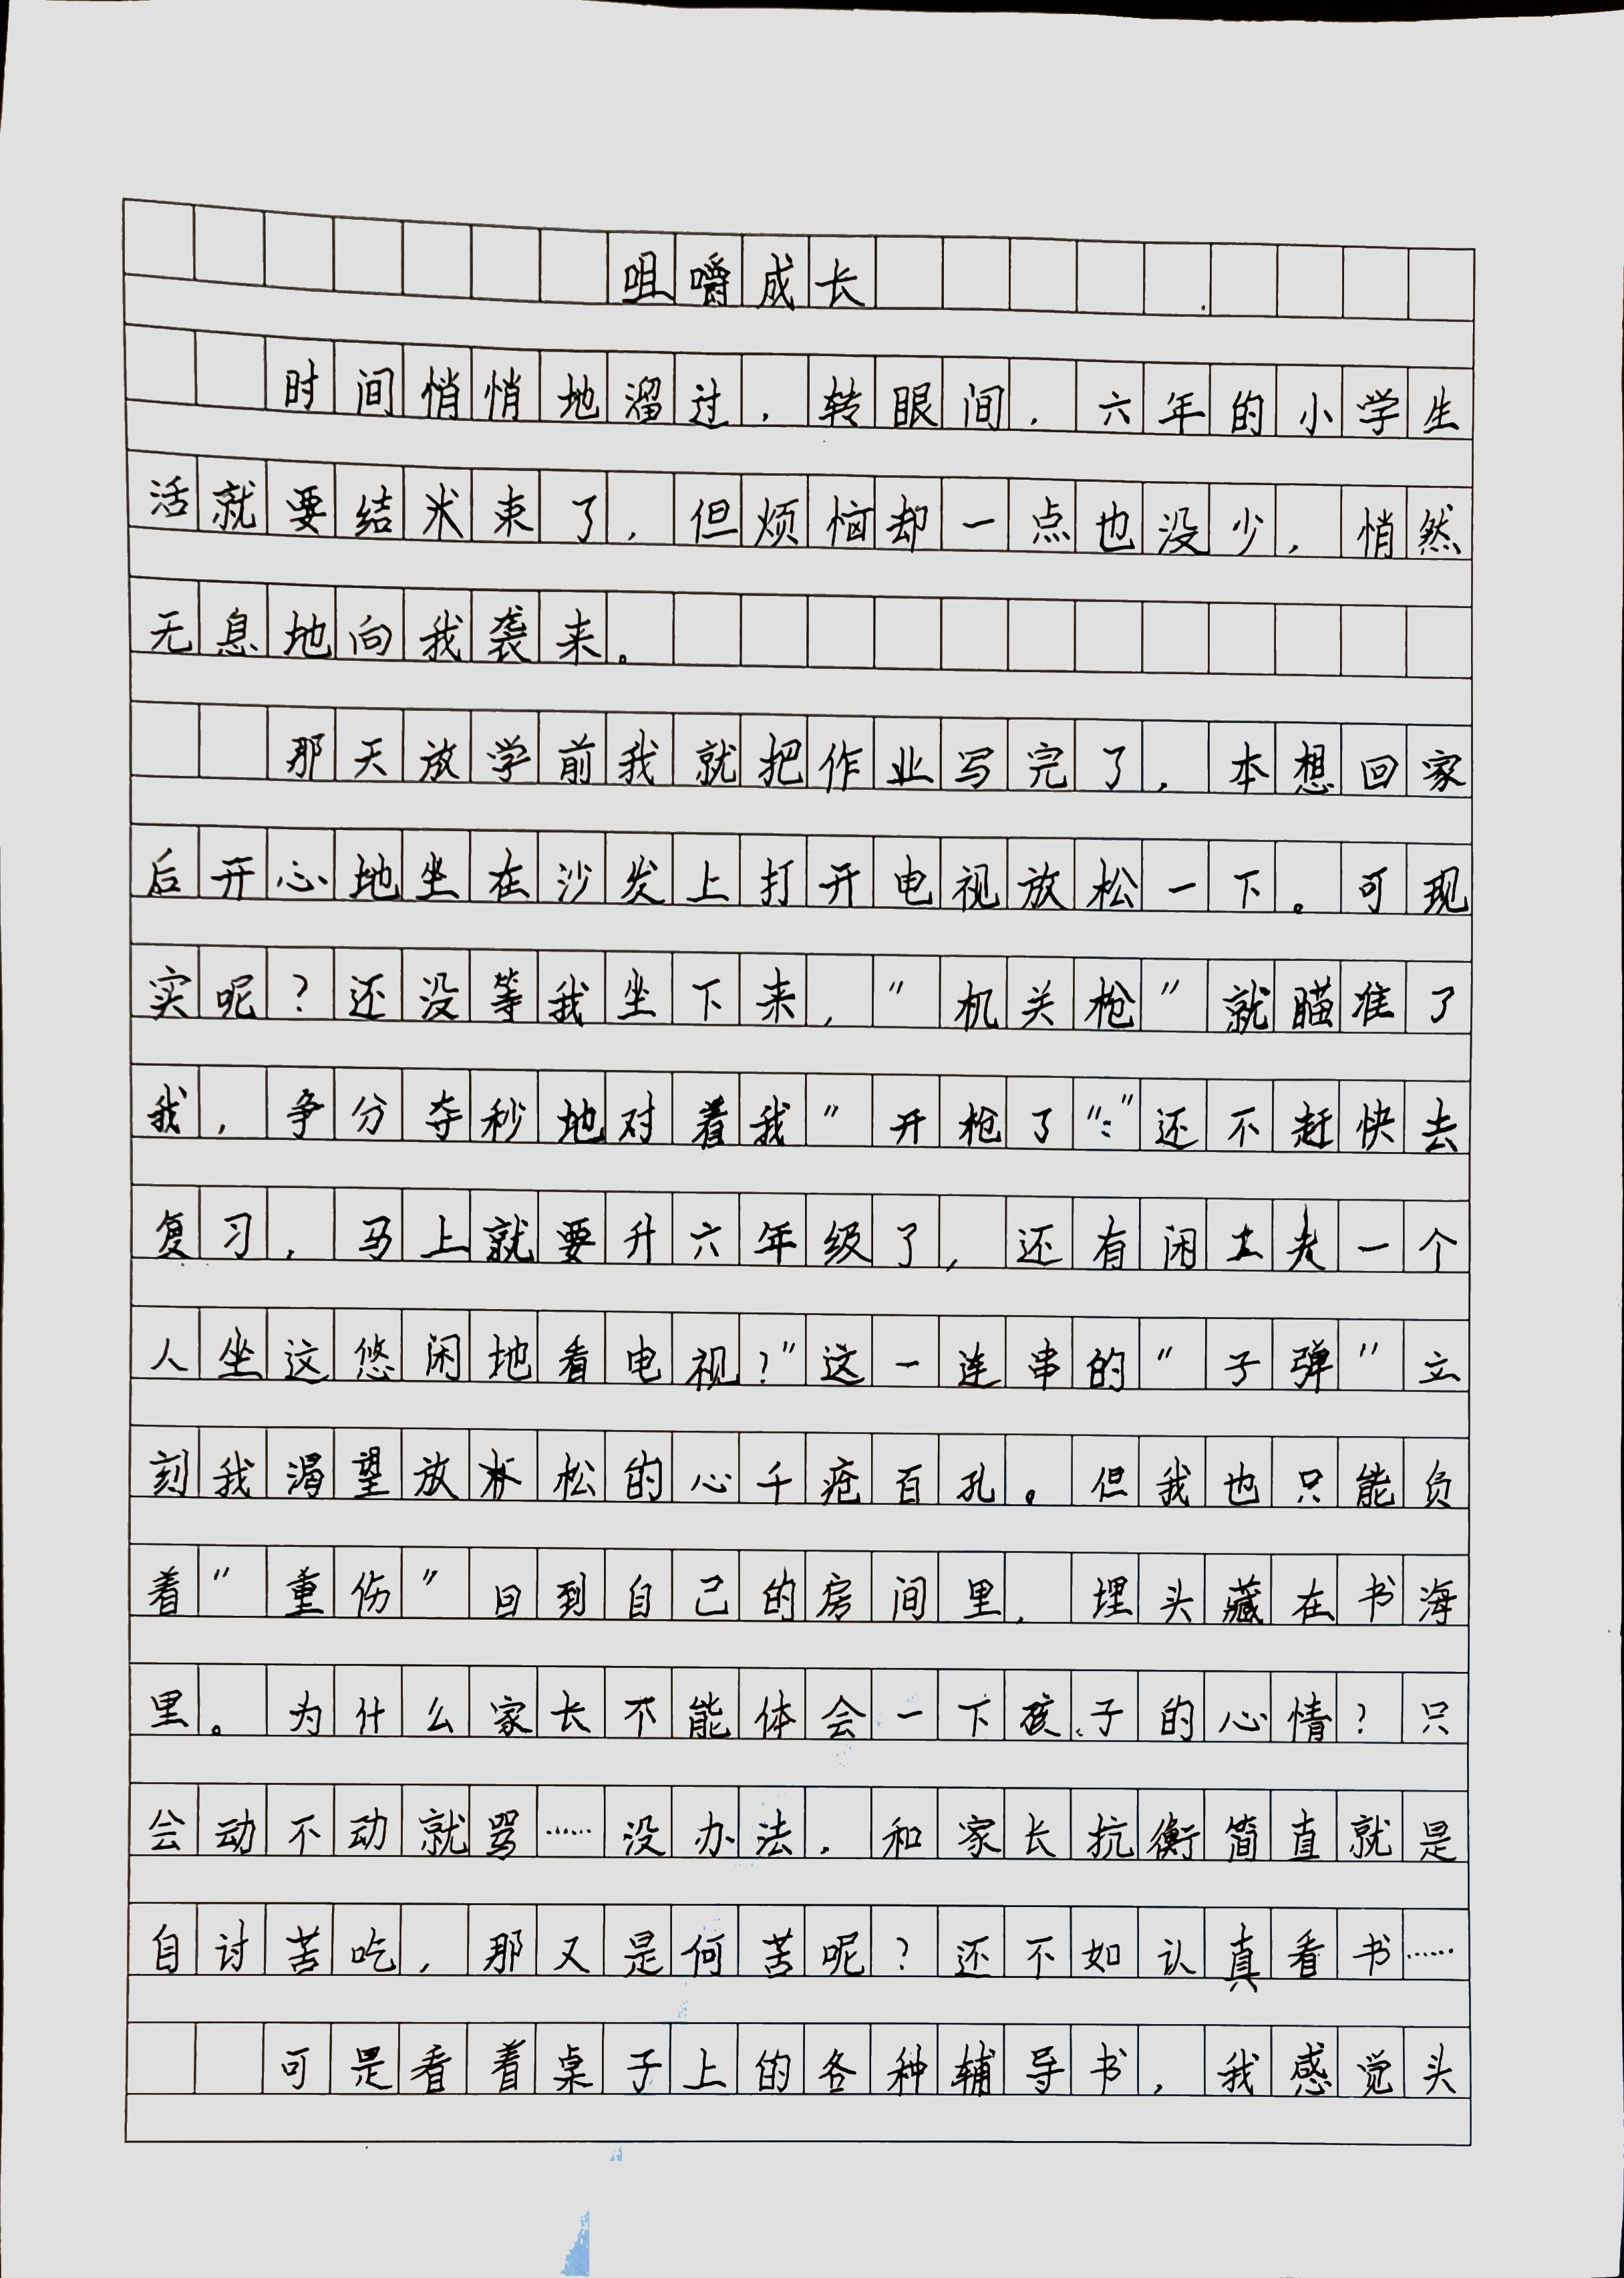 咀嚼成长
时间悄悄地溜过，转眼间，六年的小学生
活就要结米束了，但烦恼却一点也没少，悄然
无息地向我袭来。
那天放学前我就把作业写完了，本想回家
后开心地坐在沙发上打开电视放松一下。可现
实呢？还没等我坐下来，"机关枪"就瞄准了
我，争分夺秒地对着我"开枪了"："还不赶快去
复习，马上就要升六年级了，还有闲工夫一个
人坐这悠闲地看电视？"这一连串的"子弹"立
刻我渴望放松的心千疮百孔。但我也只能负
着"重伤"回到自己的房间里，埋头藏在书海
里。为什么家长不能体会一下孩子的心情？只
会动不动就骂……没办法，和家长抗衡简直就是
自讨苦吃，那又是何苦呢？还不如认真看书……
可是看着桌子上的各种辅导书，我感觉头